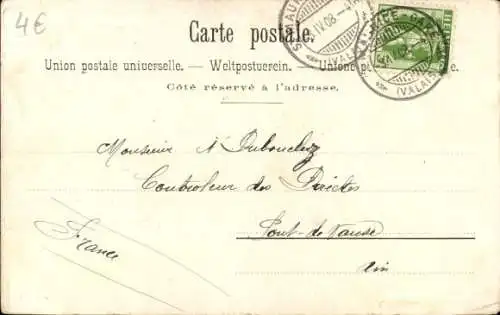 4€
Carte postale.
Union postale universelle. — Weltpostverein. — Unione p e.
Côté réservé à l'adresse.
IV 08
(VALAIS)
Monsieur A Dubouclez
Controleur des Directes
Pont-de-Vause
Ain
France